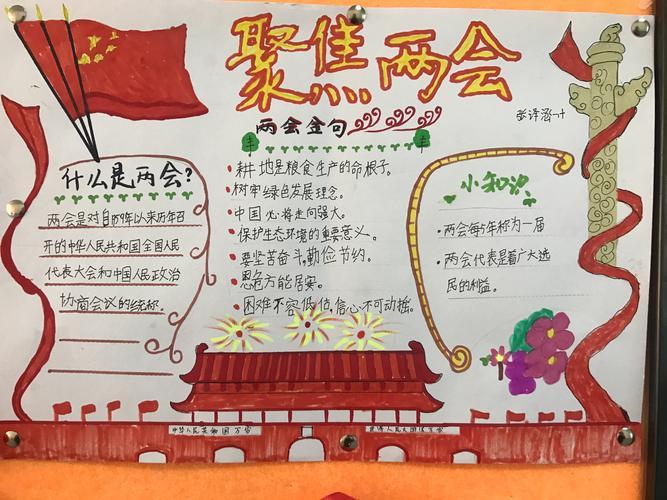 聚焦两会
两会金句
丰
丰
什么是两会?
两会是对自1959年以来历年召
开的中华人民共和国全国人民
代表大会和中国人民政治
协商会议的统称.
耕地是粮食生产的命根子。
树牢绿色发展理念。
中国必将走向强大。
保护生态环境的重要意义。
要坚苦奋斗,勤俭节约。
思危方能居安。
困难不容低估,信心不可动摇。
小知识
两会每5年称为一届
两会代表是着广大选
民的利益。
中华人民共和国万岁
世界人民大团结万岁